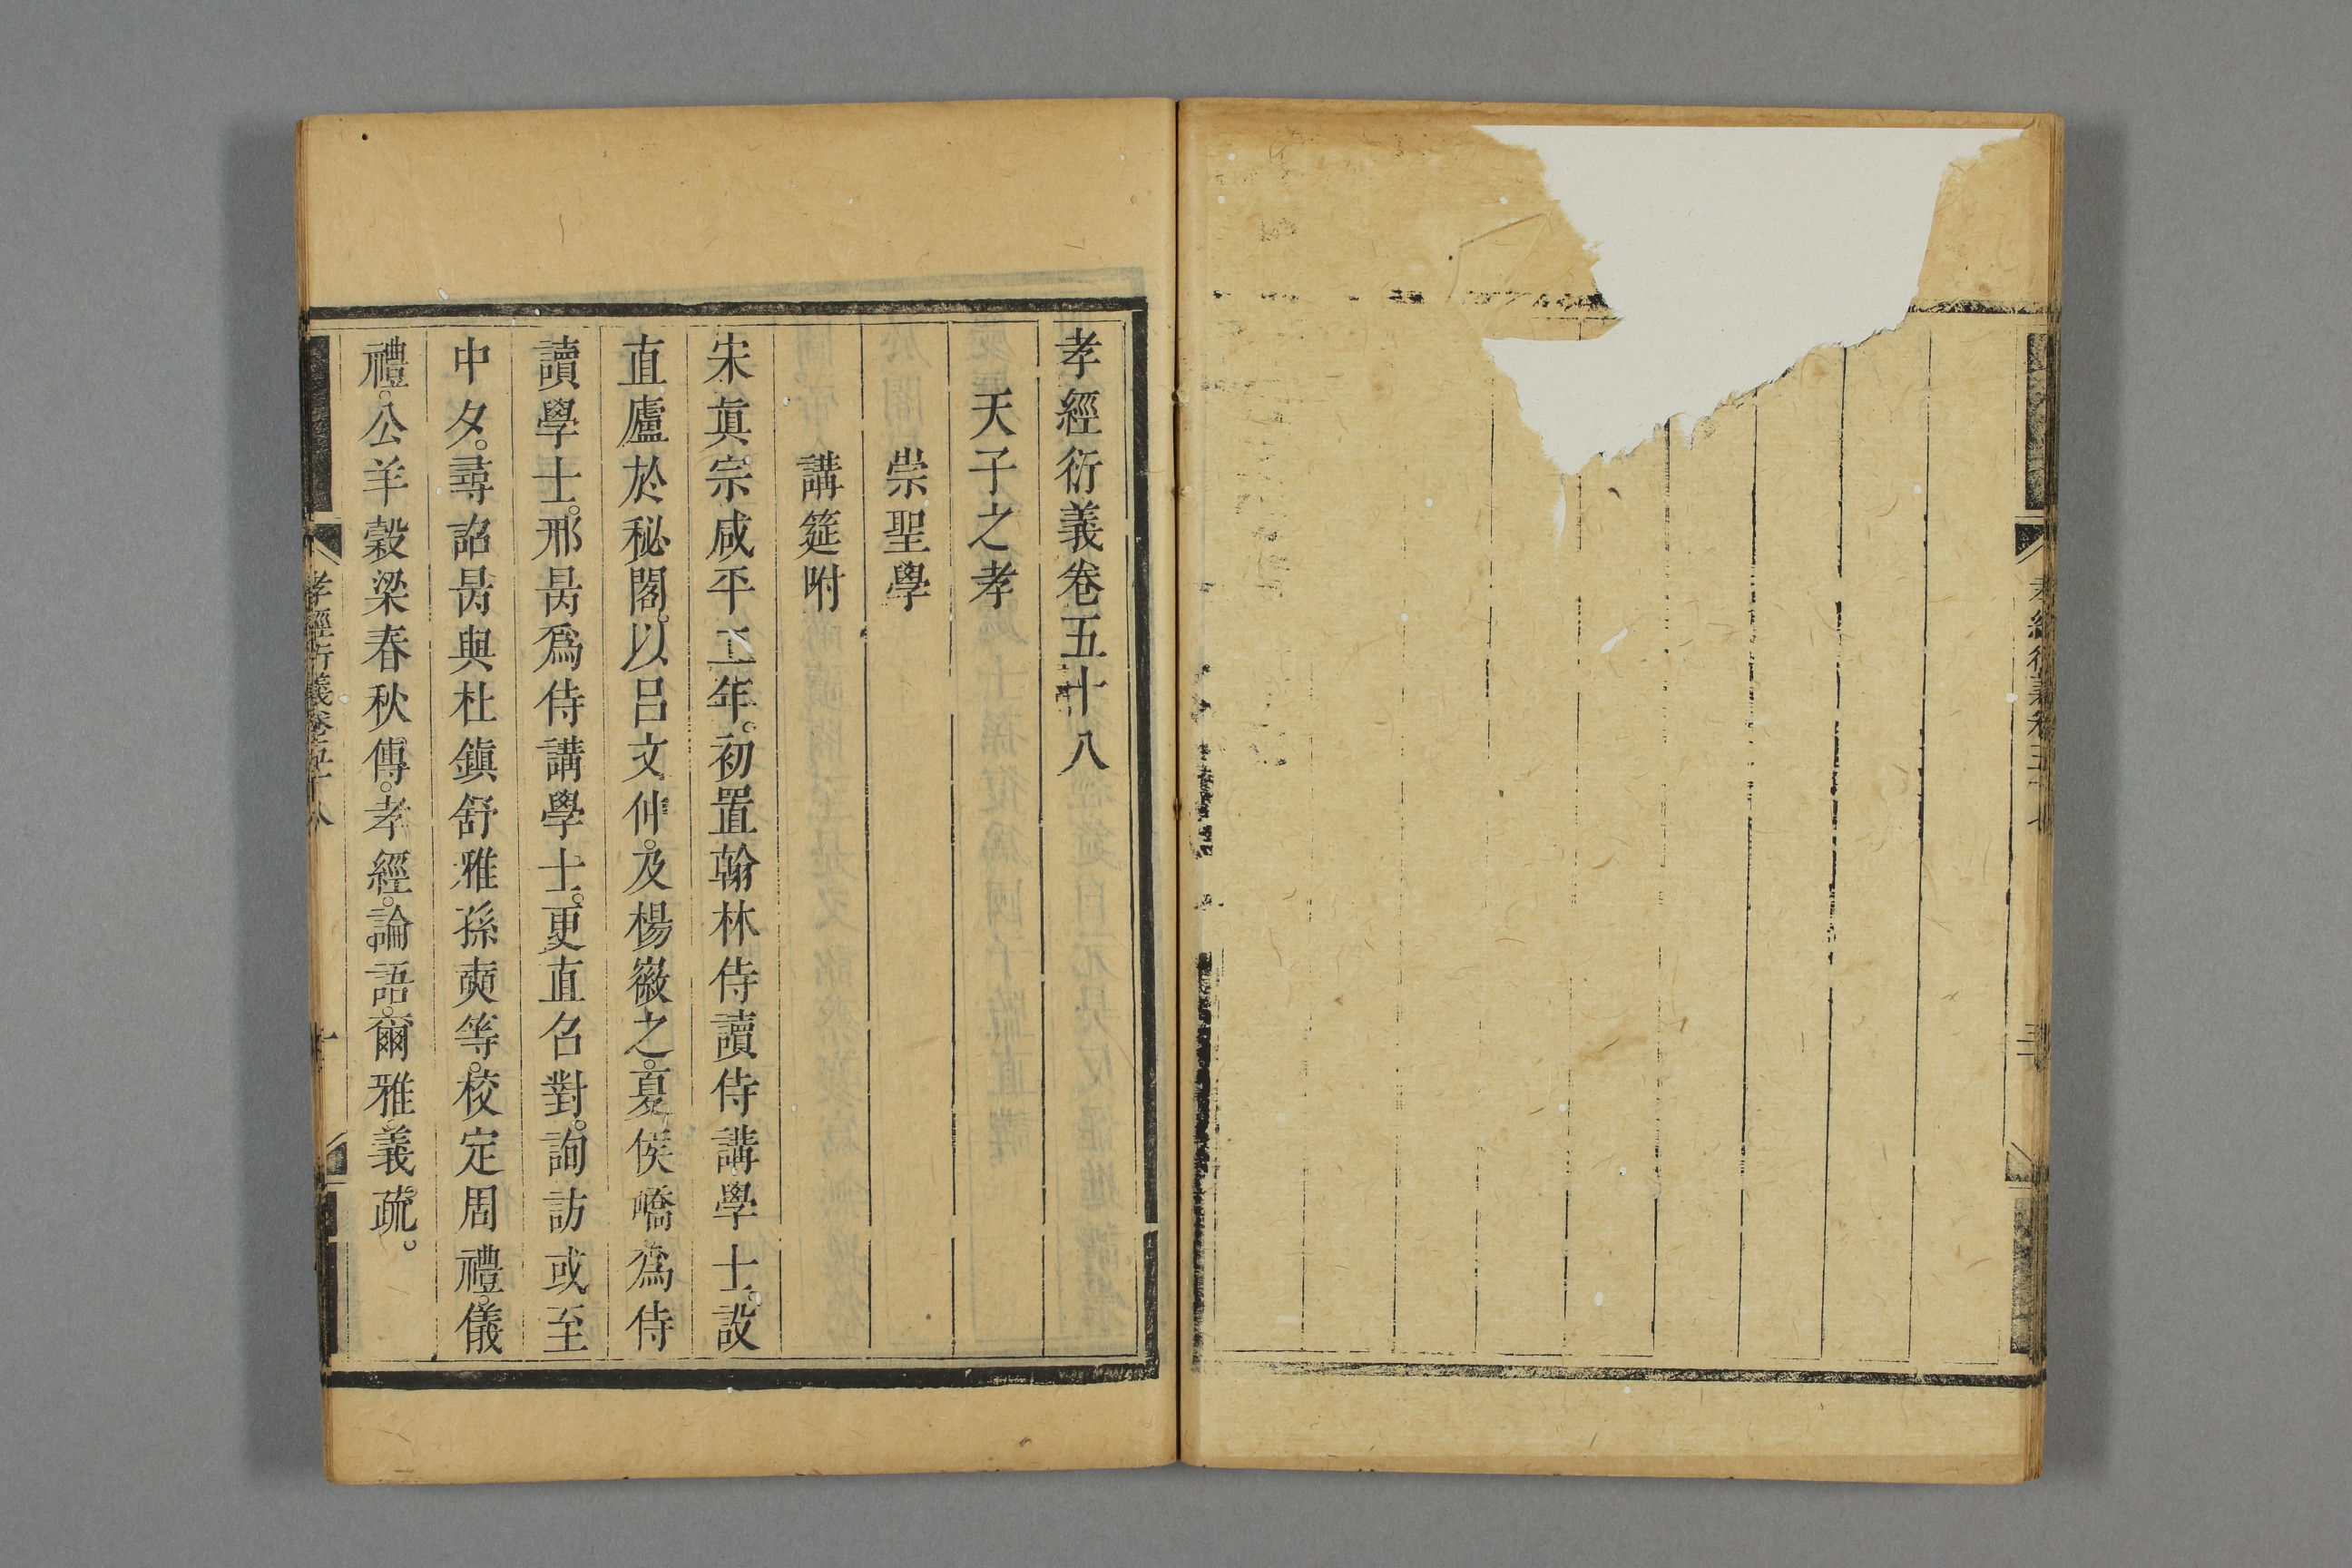 孝經衍義卷五十八
天子之孝
崇聖學
講筵附
宋眞宗咸平二年。初置翰林侍讀侍講學士。設
直廬於秘閣。以呂文仲。及楊徽之。夏侯嶠爲侍
讀學士。邢昺爲侍講學士。更直召對。詢訪或至
中夕。尋詔昺與杜鎬舒雅孫奭等。校定周禮。儀
禮。公羊穀梁春秋傳。孝經。論語。爾雅義疏。
孝經衍義卷五十八